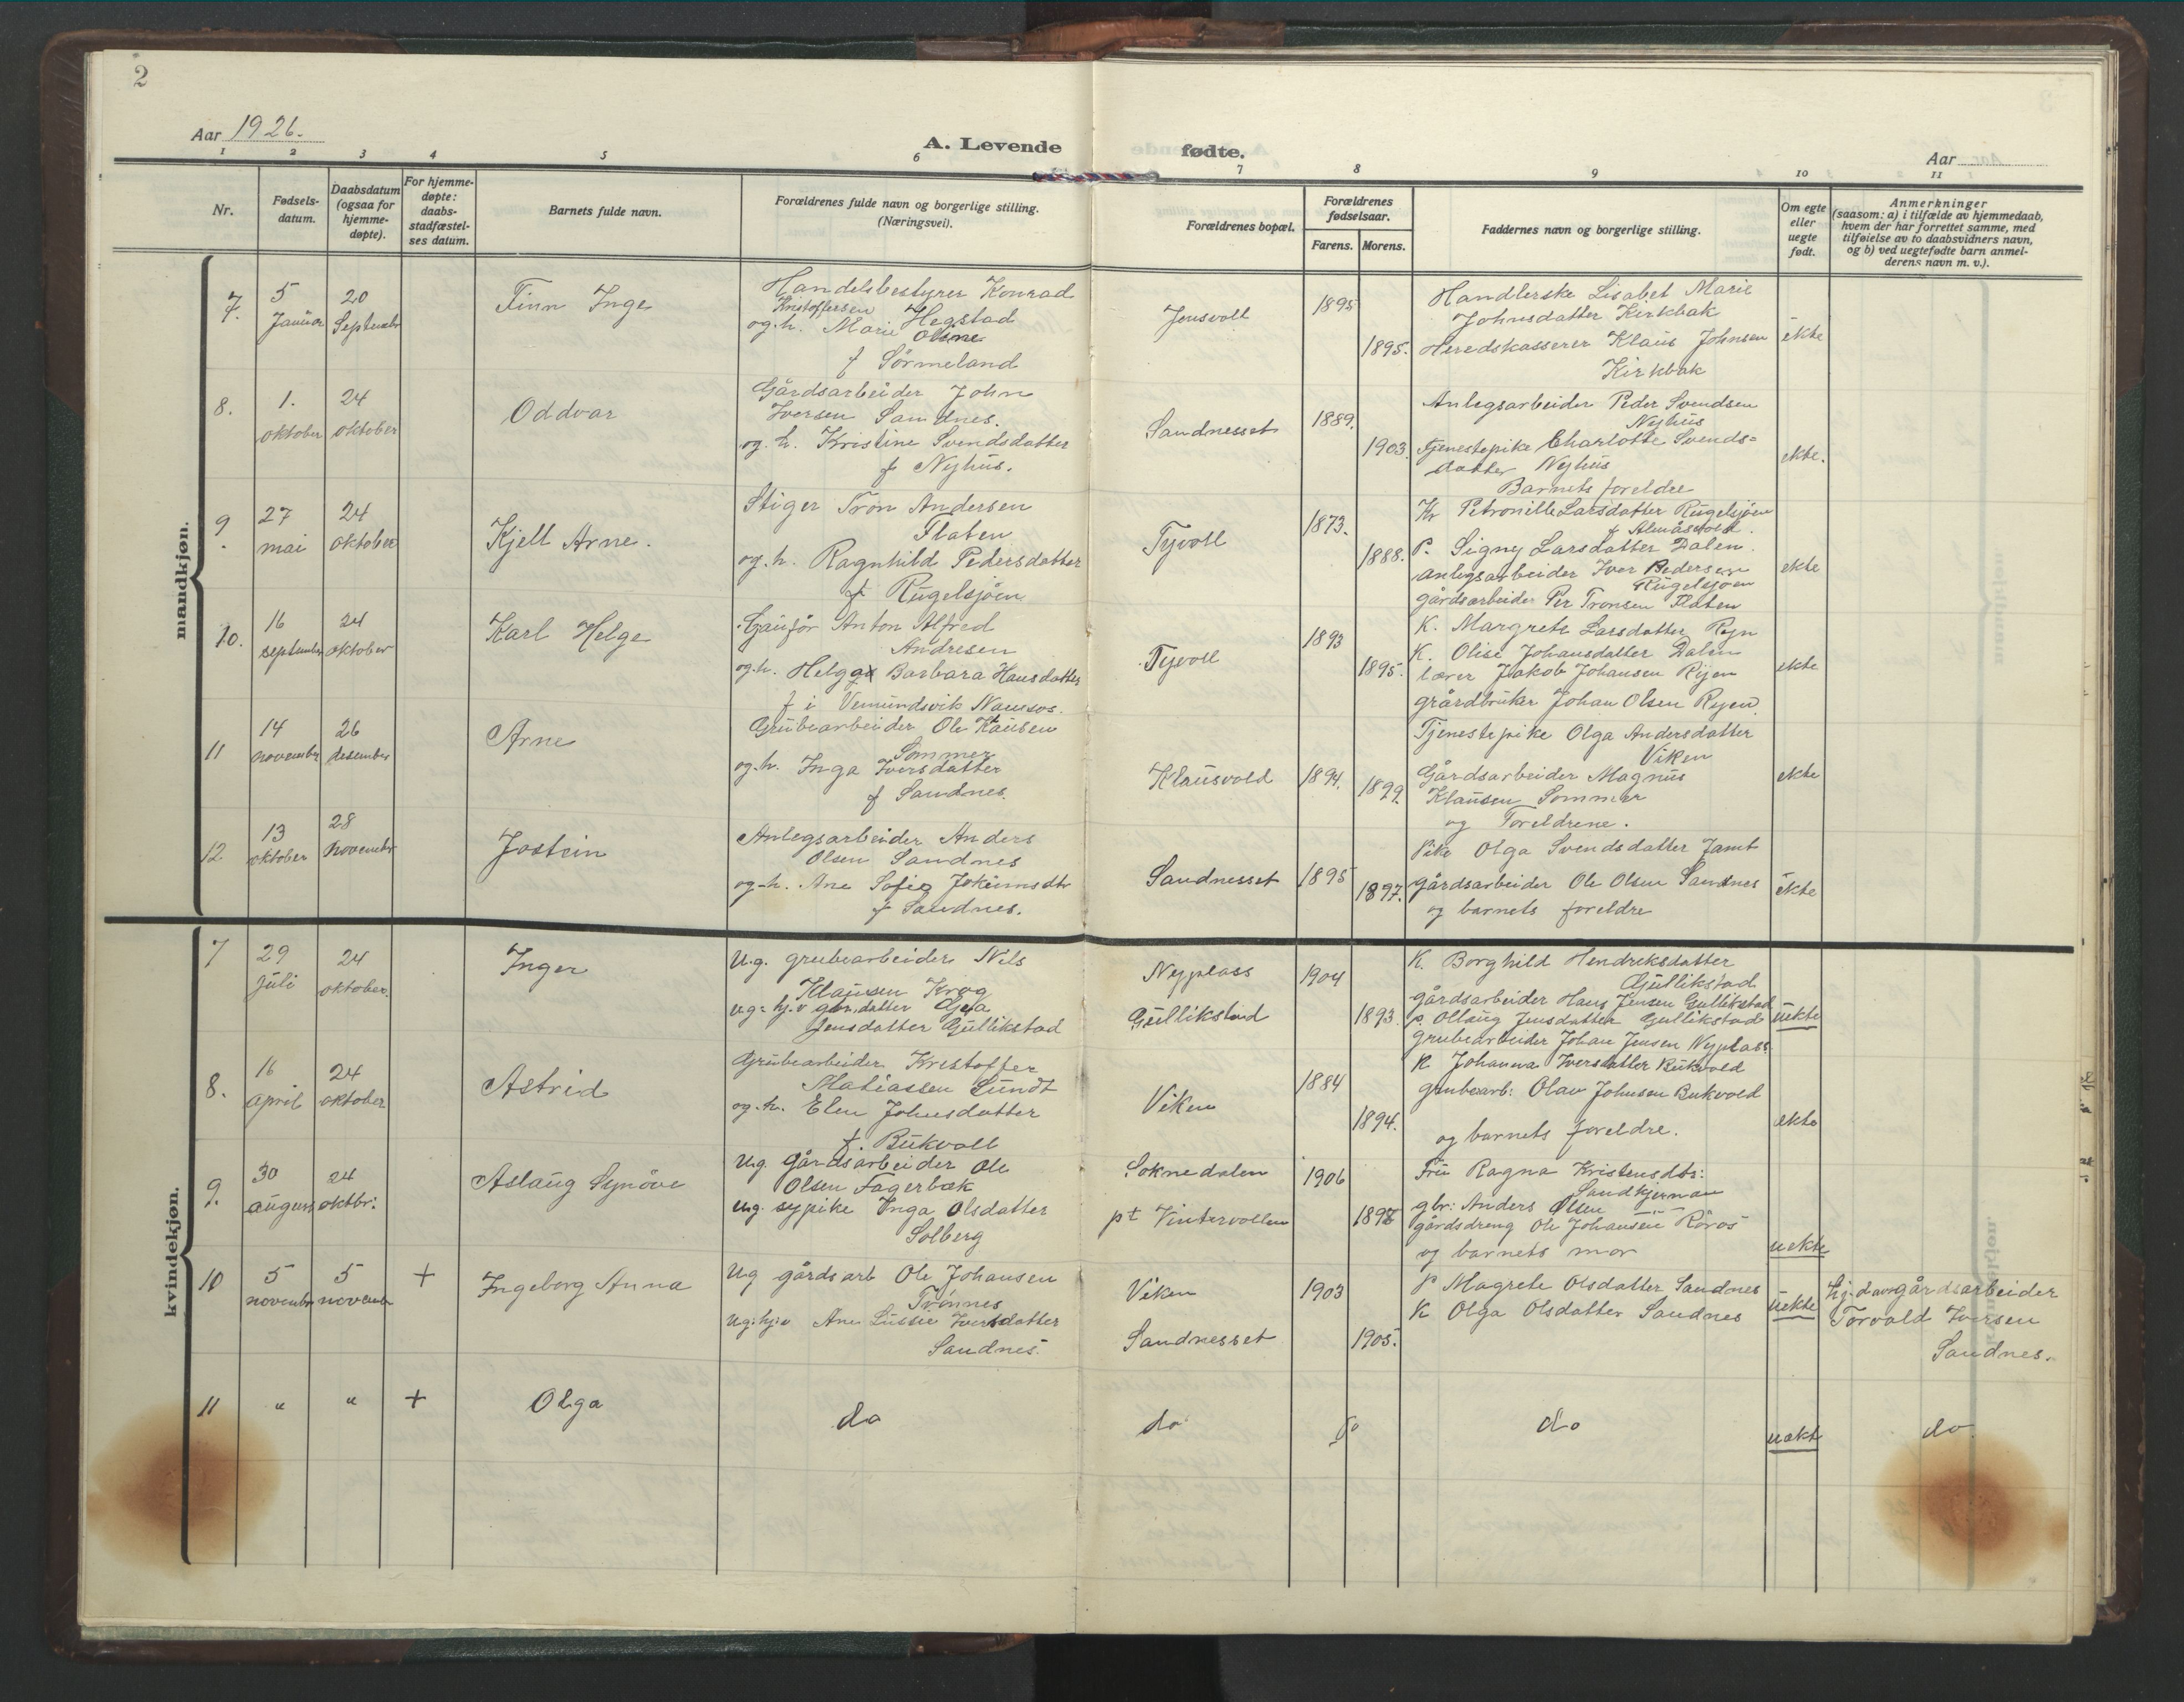 2
Aar 1926.
A. Levende fødte.
Aar
1 2 3 4 5 6 7 8 9 10 11
Nr.
Fødsels-
datum.
Daabsdatum
(ogsaa for
hjemme-
døpte).
For hjemme-
døpte:
daabs-
stadfæstel-
ses datum.
Barnets fulde navn.
Forældrenes fulde navn og borgerlige stilling.
(Næringsvei).
Forældrenes bopæl.
Forældrenes
fødselsaar.
Farens. Morens.
Faddernes navn og borgerlige stilling.
Om egte
eller
uegte
født.
Anmerkninger
(saasom: a) i tilfælde av hjemmedaab,
hvem der har forrettet samme, med
tilføielse av to daabsvidners navn,
og b) ved uegtefødte barn anmel-
derens navn m. v.).
mandkjøn.
7.
5
Januar
20
Septembr
Finn Inge
Handelsbestyrer Konrad
Kristoffersen Hegstad
og. h. Marie Oline
f Sörmeland
Jensvoll
1895
1895.
Handlerske Lisabet Marie
Johnsdatter Kirkbak
Heredskasserer Klaus Johnsen
Kirkbak
ekte
8.
1.
oktober
24
oktober
Oddvar
Gårdsarbeider John
Iversen Sandnes.
og. h. Kristine Svendsdatter
f Nyhus.
Sandnesset
1889.
1903.
Anlegsarbeider Peder Svendsen
Nyhus
Tjenestepike Charlotte Svends=
datter Nyhus
Barnets foreldre
ekte.
9.
27
mai
24
oktober
Kjell Arne.
Stiger Tron Andersen
Flaten
og. h. Ragnhild Pedersdatter
f Rugelsjöen
Tyvoll
1873.
1888.
K Petronille Larsdatter Rugelsjöen
f Almåsvold.
P. Signy Larsdatter Dalen.
Anlegsarbeider Iver Pedersen
Rugelsjöen
gårdsarbeider Per Tronsen Flaten
ekte
10.
16
september
24
oktober
Karl Helge
Anton Alfred
Andresen
og. h. Helga Barbara Hansdatter
f i Vemundsvik Namsos.
Tyvoll
1893
1895.
K. Margrete Larsdatter Ryen
K. Olise Johansdatter Dalen
lærer Jakob Johansen Ryen
grårdbruker Johan Olsen Ryen
ekte
11
14
november
26
desember
Arne
Grubearbeider Ole Klausen
Sommer
og. h. Inga Iversdatter
f Sandnes.
Klausvold
1894.
1899.
Tjenestepike Olga Andersdatter
Viken
Gårdsarbeider Magnus
Klausen Sommer
og Foreldrene.
ekte
12
13
oktober
28
Novembr
Jostein
Anlegsarbeider Anders
Olsen Sandnes
og. h. Ane Sofie Jokumsdtr
f Sandnes.
Sandnesset
1895
1897.
Pike Olga Svendsdatter Jamt
gårdsarbeider Ole Olsen Sandnes
og barnets foreldre
ekte
kvindekjøn.
7
29
juli
24
oktober.
Inger
U.g. grubearbeider Nils
Klausen Krog
ug: hj.v gbr.datter
Jensdatter Gullikstad
Nyplass
Gullikstad
1904
1893.
K. Borghild Hendreksdatter
Gullikstad
gårdsarbeider Hans Jensen Gullikstad
p. Ollaug Jensdatter Gullikstad
grubearbeider Johan Jensen Nyplass
uekte
8.
16
april
24
oktober
Astrid
Grubearbeider Kristoffer
Matiassen Lundt
og. h. Elen Johnsdatter
f. Bukvoll
Viken
1884
1894.
K Johanna Iversdatter Bukvold
grubearb: Olav Johnsen Bukvold
og barnets foreldre.
ekte
9.
30
august
24
oktbr:
Aslaug Synöve
Ug. gårdsarbeider Ole
Olsen Fagerbæk
ug. sypike Inga Olsdatter
Solberg
Soknedalen
pt Vintervollen
1906
1898
Fru Ragna Kristensdtr:
Sandkjernan
gbr: Anders Olsen —"—
gårdsdreng Ole Johansen Röros
og barnets mor
uekte
10
5
novembr
5
novembr
+
Ingeborg Anna
Ug gårdsarb Ole Johansen
Trönnes
ug: hj.v Ane Lussie Iversdatter
Sandnes.
Viken
Sandnesset
1903
1905.
P Magrete Olsdatter Sandnes
K Olga Olsdatter Sandnes
uekte
hj.d av gårdsarbeider
Torvald Iversen
Sandnes.
11
"
"
+
Olga
do
do
do
do
uekt
do